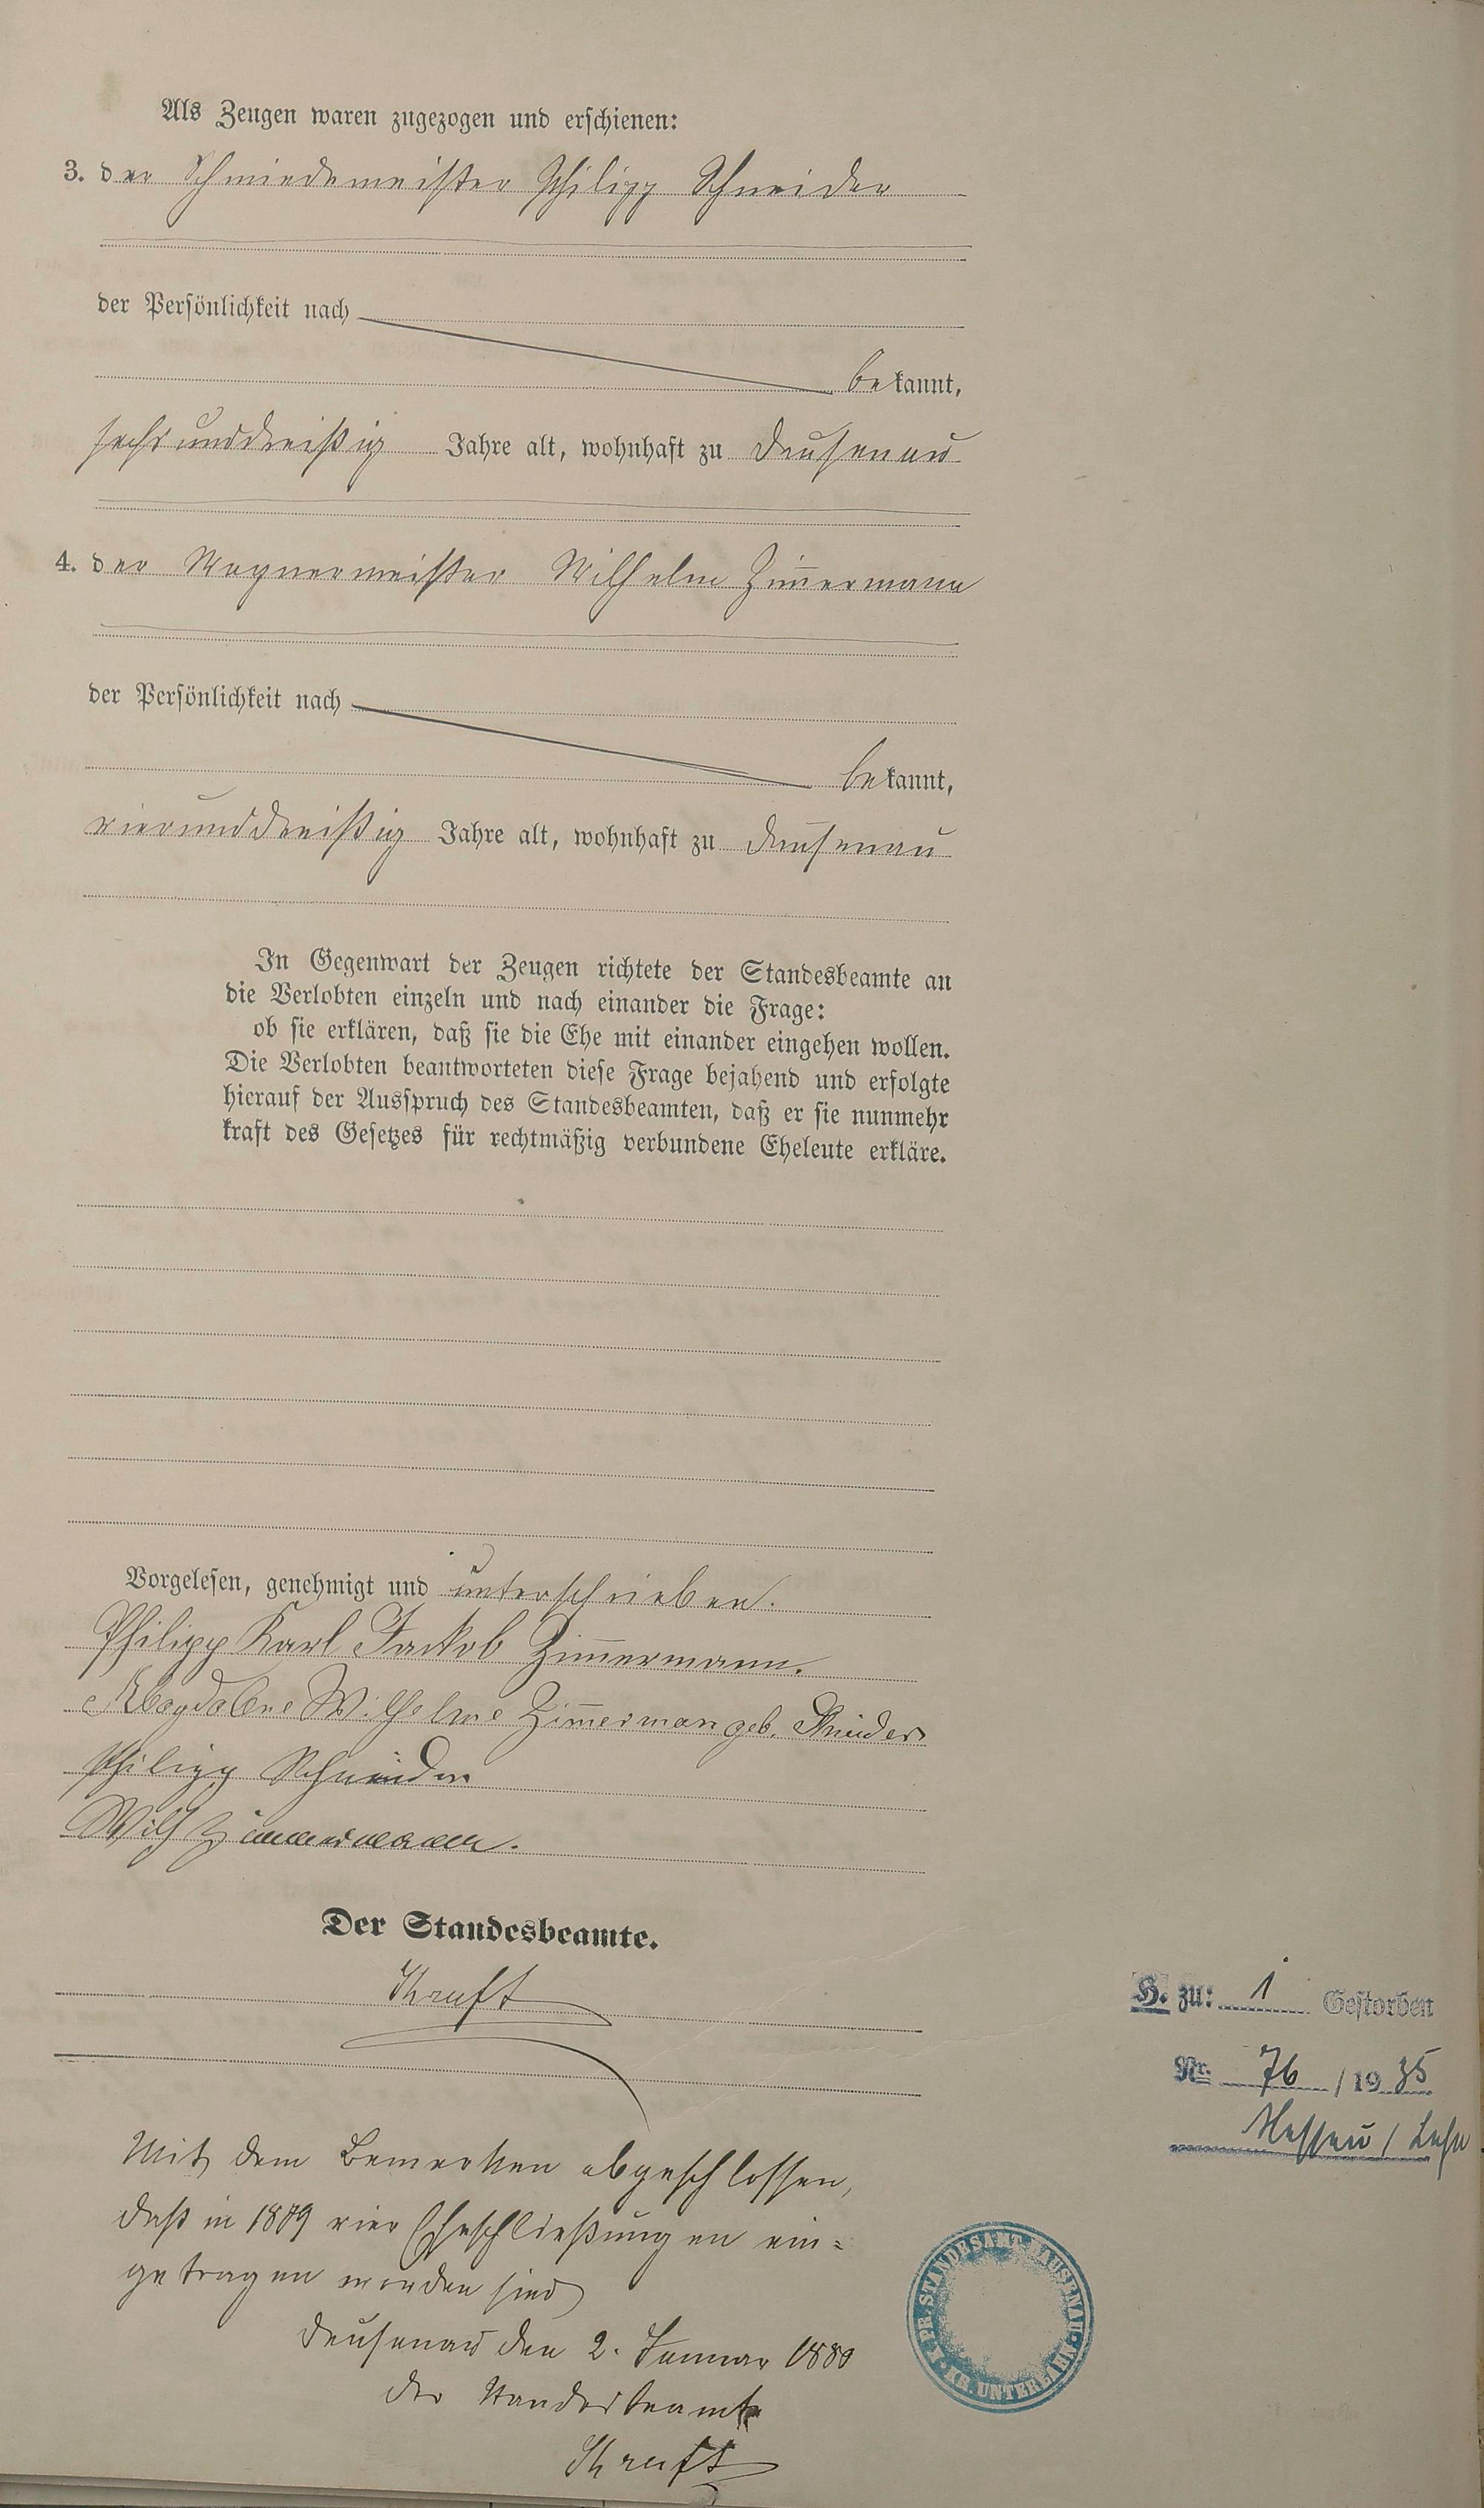 Als Zeugen waren zugezogen und erschienen:
3. der Schmiedemeister Philipp Schneider
der Persönlichkeit nach
bekannt,
sechsunddreißig Jahre alt, wohnhaft zu Dausenau
4. der Wagnermeister Wilhelm Zim̄ermann
der Persönlichkeit nach
bekannt,
vierunddreißig Jahre alt, wohnhaft zu Dausenau
In Gegenwart der Zeugen richtete der Standesbeamte an
die Verlobten einzeln und nach einander die Frage:
ob sie erklären, daß sie die Ehe mit einander eingehen wollen.
Die Verlobten beantworteten diese Frage bejahend und erfolgte
hierauf der Ausspruch des Standesbeamten, daß er sie nunmehr
kraft des Gesetzes für rechtmäßig verbundene Eheleute erkläre.
Vorgelesen, genehmigt und unterschrieben.
Philipp Karl Jackob Zim̄ermann.
Magdalene Wilhelme Zim̄erman geb. Schneider
Philipp Schneider
Wilh Zimmermann.
Der Standesbeamte.
H. zu: 1 Gestorben
Nr. 76 / 1935
Nassau / Lahn
Mit dem Bemerken abgeschlossen,
daß in 1889 vier Eheschließungen ein-
getragen worden sind
Dausenau den 2. Januar
der Standesbeamte
K. PR. STANDESAMT DAUSENAU KR. UNTERLAHN